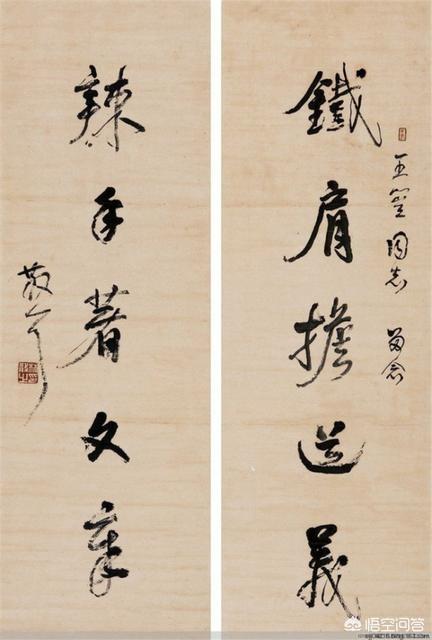 王
同志 留念
鐵肩擔道義
辣手著文章
散耳
悟空问答